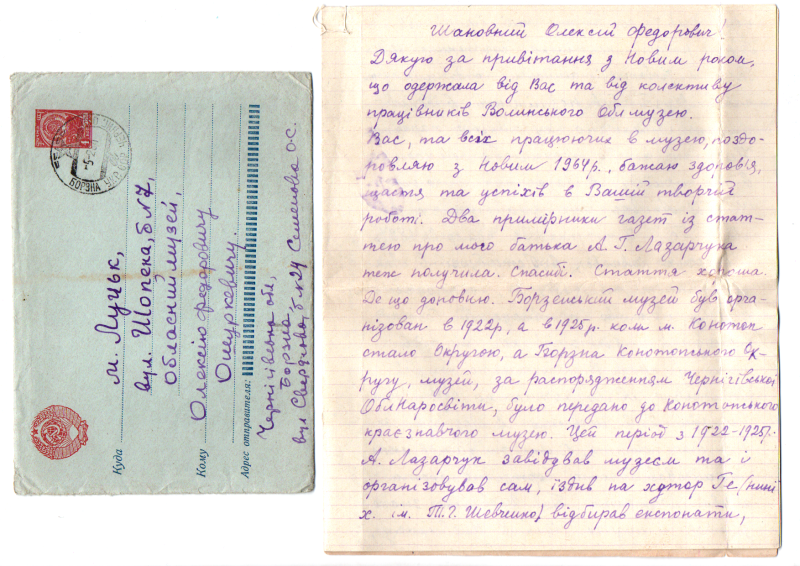 Куда
м. Луцьк,
вул. Шопена, б №7,
Обласний музей,
Кому
Олексію Федоровичу
Ошуркевичу.
Адрес отправителя:
Чернігівська обл,
Борзна
вул Свердлова, б №24 Семенова О.С.
БОРЗНА
Шановний Олексій Федорович!
Дякую за привітання з Новим роком,
що одержала від Вас та від колективу
працівників Волинського Облмузею.
Вас, та всіх працюючих в музею, поздо-
ровляю з Новим 1964р., бажаю здоров'я,
щастя та успіхів в Вашій творчій
роботі. Два примірники газет із стат-
тею про мого батька А. Г. Лазарчука
теж получила. Спасибі. Стаття хороша.
Де що доповню. Борзенський музей був орга-
нізован в 1922р, а в 1925р. коли м. Конотоп
стало Округою, а Борзна Конотопського Ок-
ругу, музей, за распорядженням Чернігівської
ОблНаросвіти, було передано до Конотопського
краєзнавчого музею. Цей період з 1922-1925р.
А. Лазарчук завідував музеєм та і
організовував сам, їздив на хутор Ге (нині
х. ім. Т. Г. Шевченко) відбирав експонати,